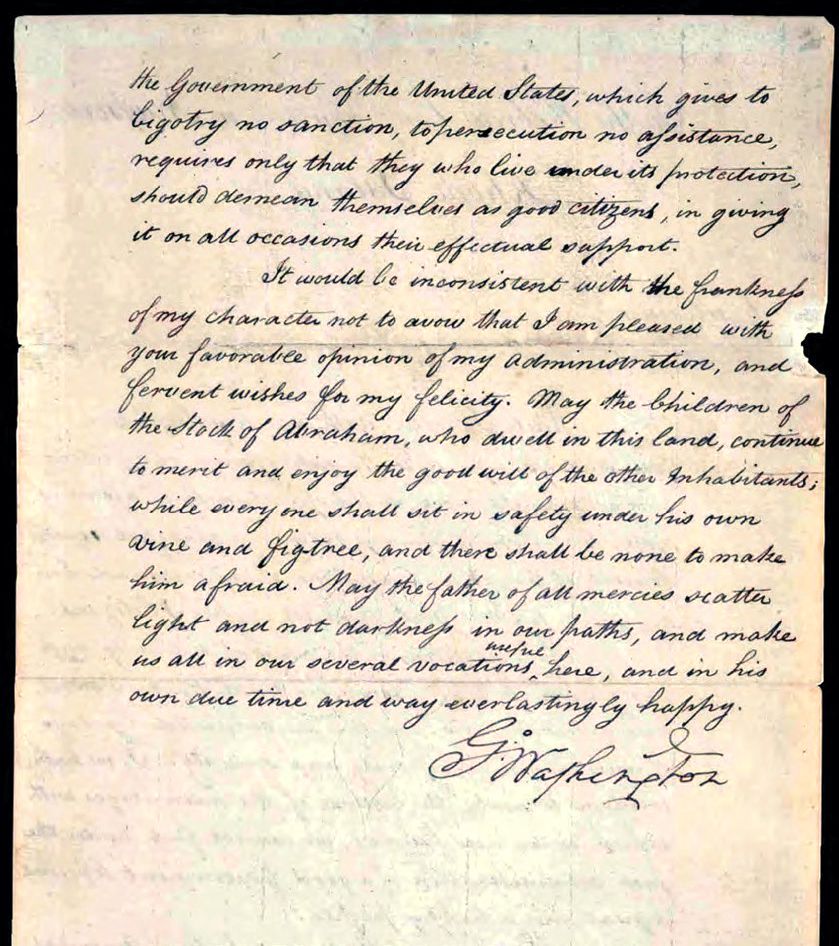 the Government of the United States, which gives to
bigotry no sanction, to persecution no assistance,
requires only that they who live under its protection,
should demean themselves as good citizens, in giving
it on all occasions their effectual support.
It would be inconsistent with the frankness
of my character not to avow that I am pleased with
your favorable opinion of my administration, and
fervent wishes for my felicity. May the Children of
the Stock of Abraham, who dwell in this land, continue
to merit and enjoy the good will of the other Inhabitants;
while every one shall sit in safety under his own
vine and figtree, and there shall be none to make
him afraid. May the father of all mercies scatter
light and not darkness in our paths, and make
us all in our several vocations useful here, and in his
own due time and way everlastingly happy.
G. Washington